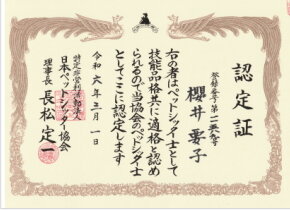 認定証
櫻井要子
右の者はペットシッター士として
技能品格共に適格と認め
られるので当協会のペットシッター士
としてここに認定します
令和六年三月一日
特定非営利活動法人
日本ペットシッター協会
理事長 長松定一